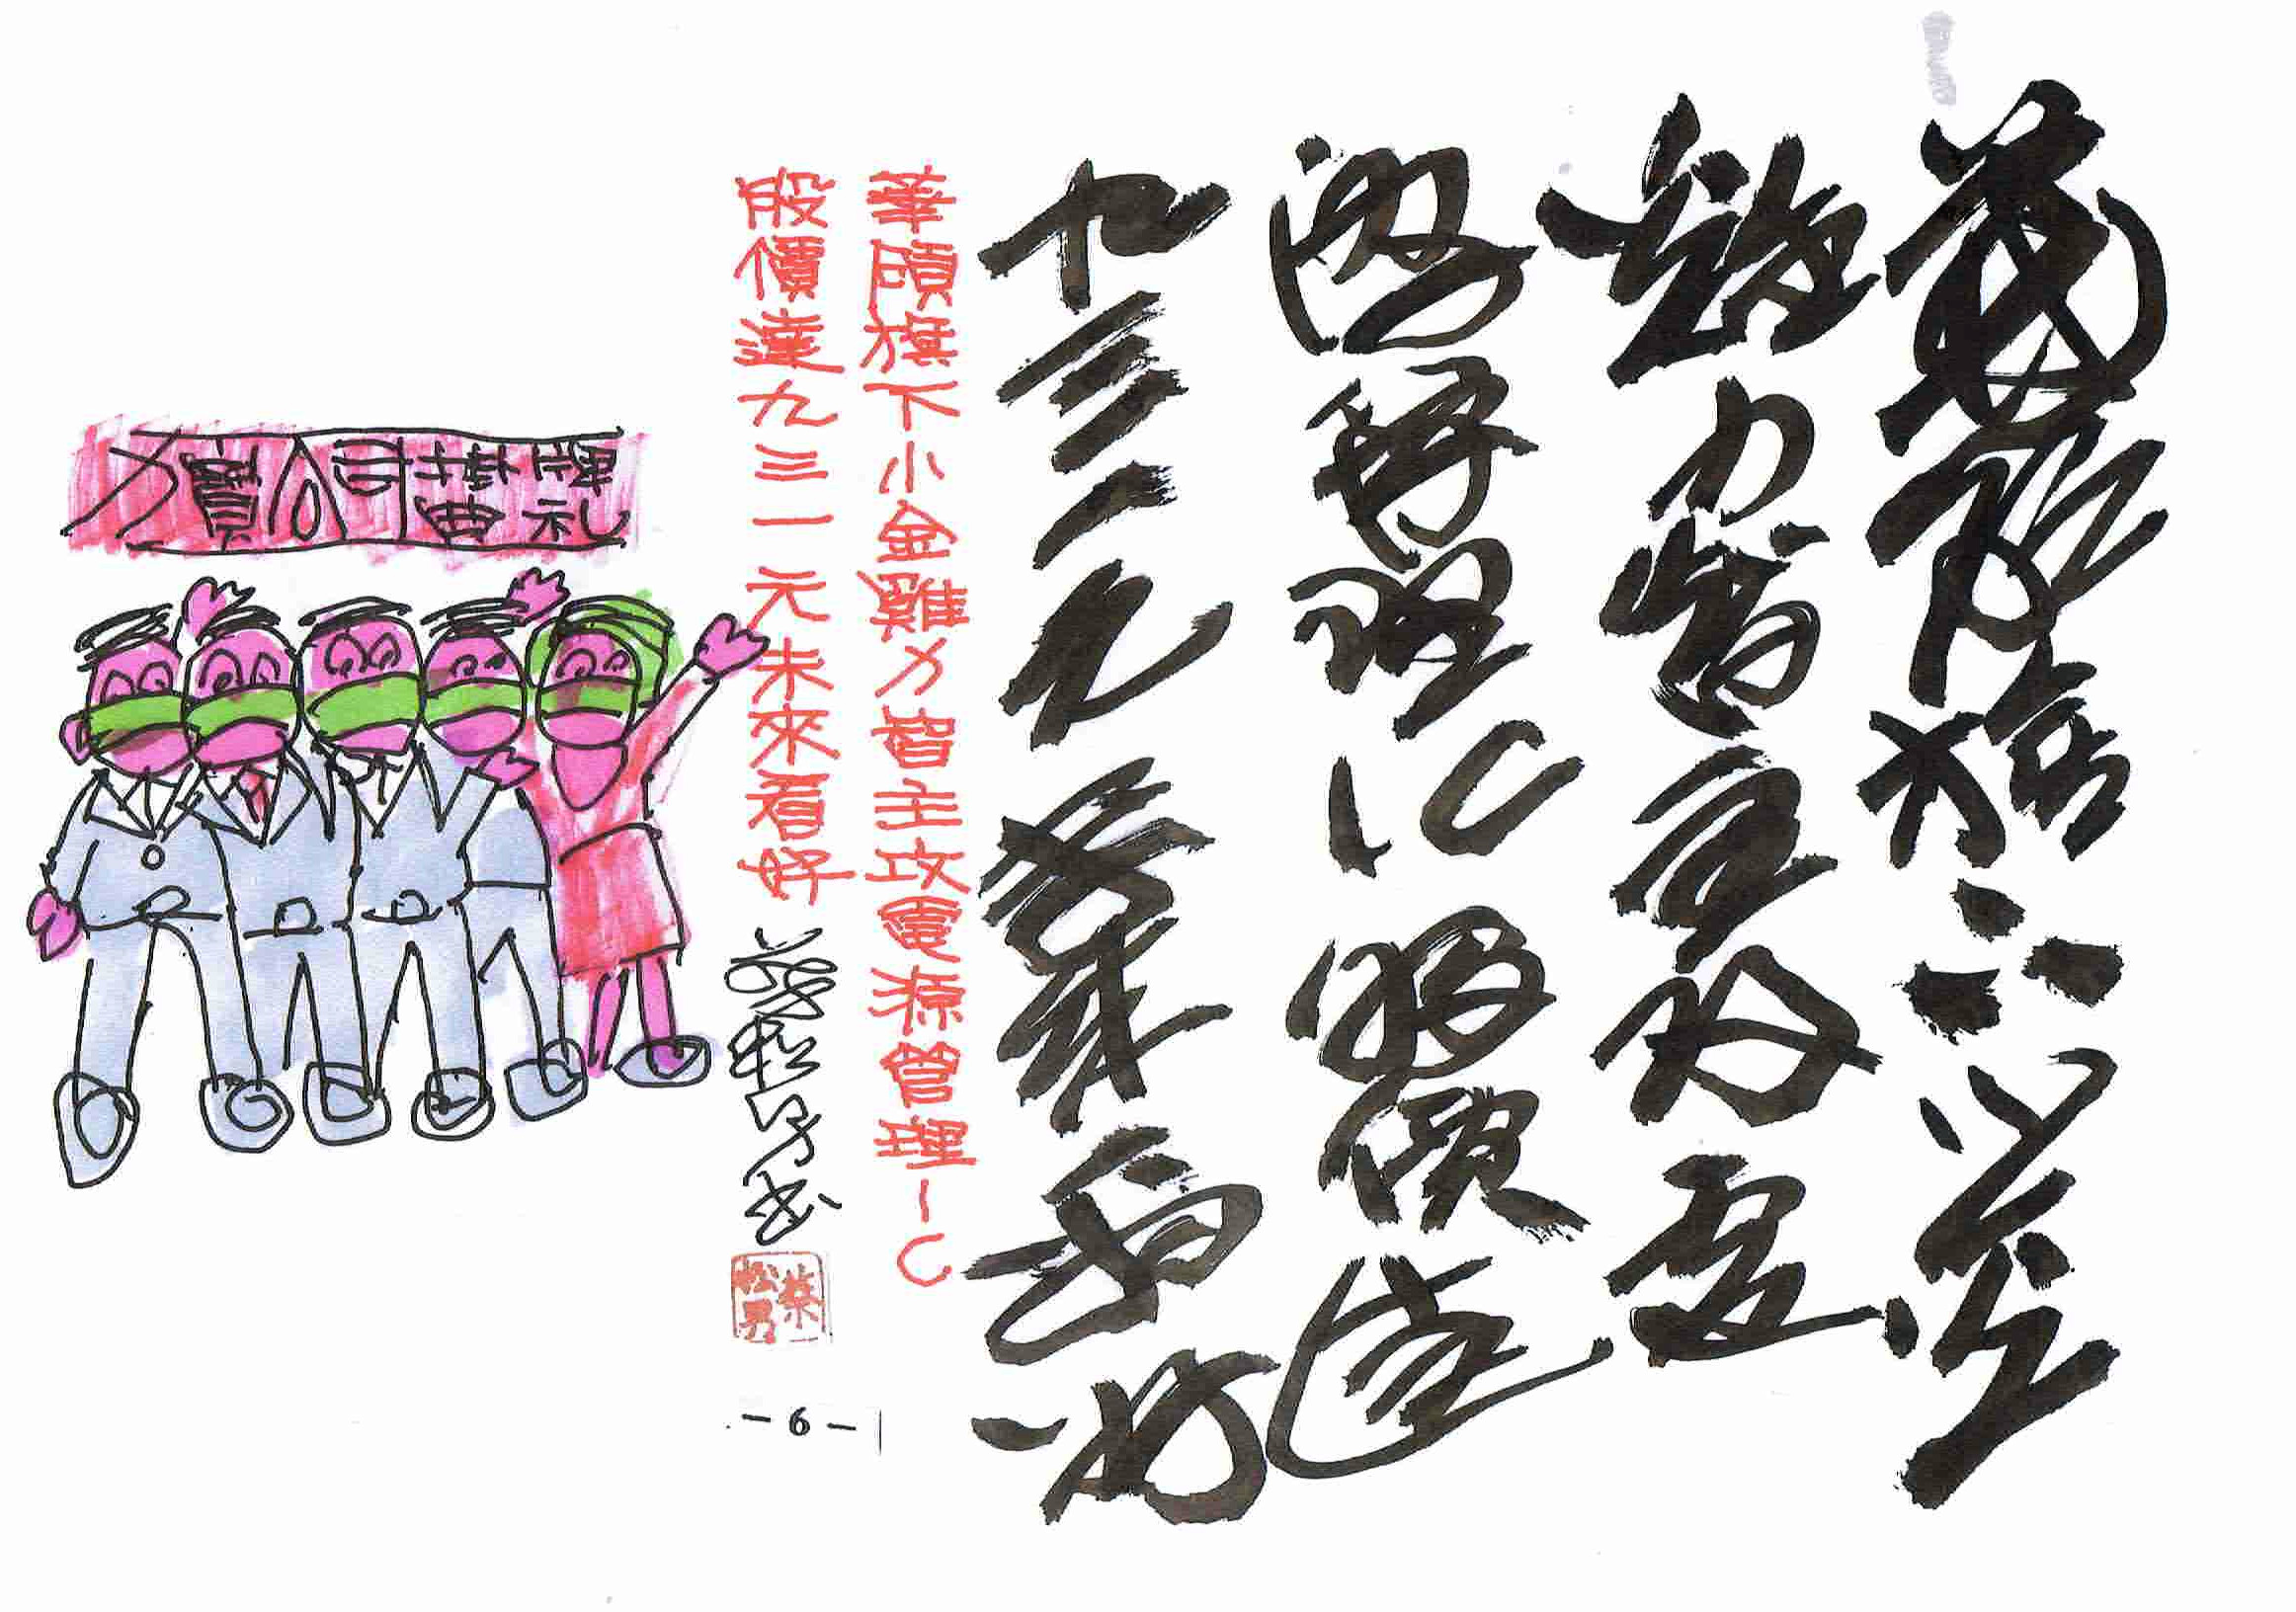 華碩旗下小金
雞力智主攻電
源管理IC股價達
九三一元未來看好
華碩旗下小金雞力智主攻電源管理IC
股價達九三一元未來看好
蔡松男書
蔡松男
力智公司掛牌
典礼
-6-